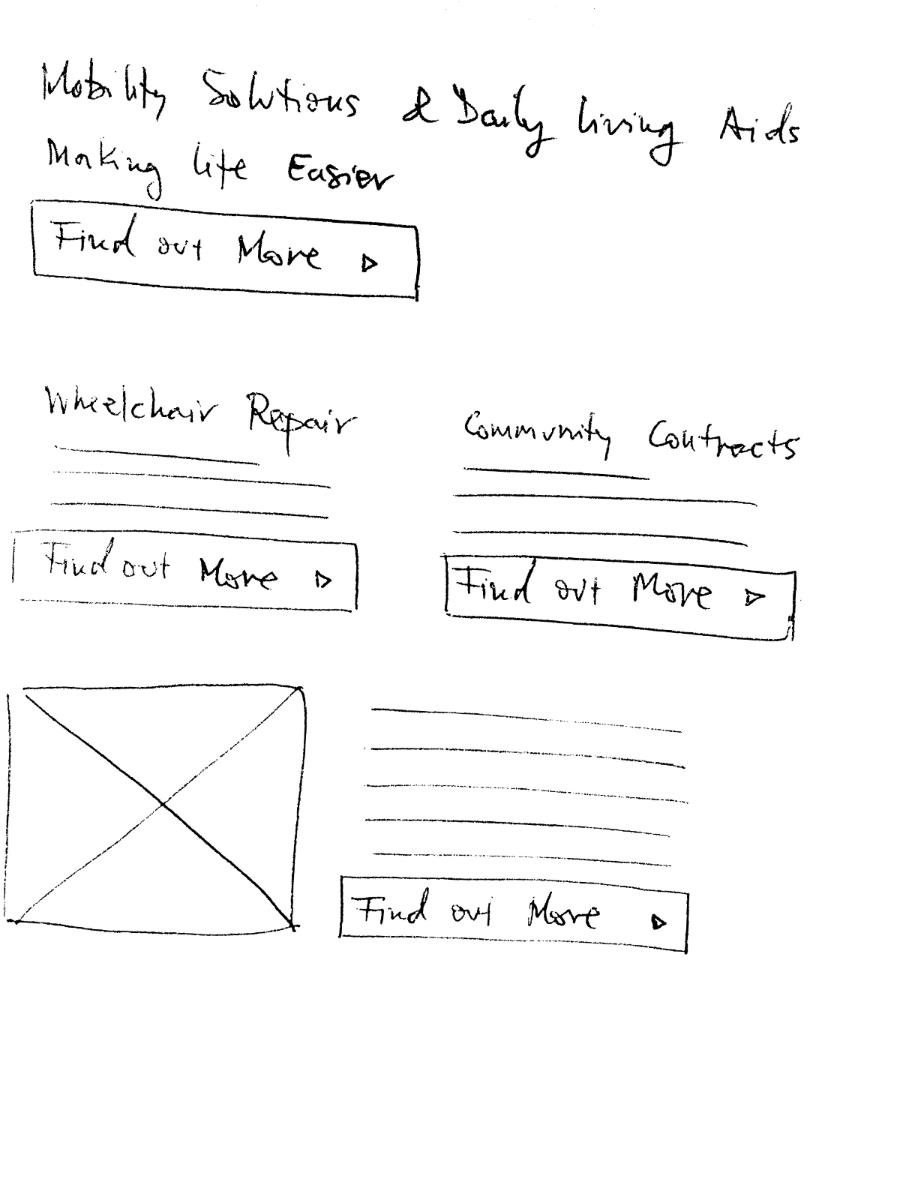 Mobility Solutions & Daily living Aids
Making life Easier
Find out More ▷
Wheelchair Repair
Community Contracts
Find out More ▷
Find out More ▷
Find out More ▷